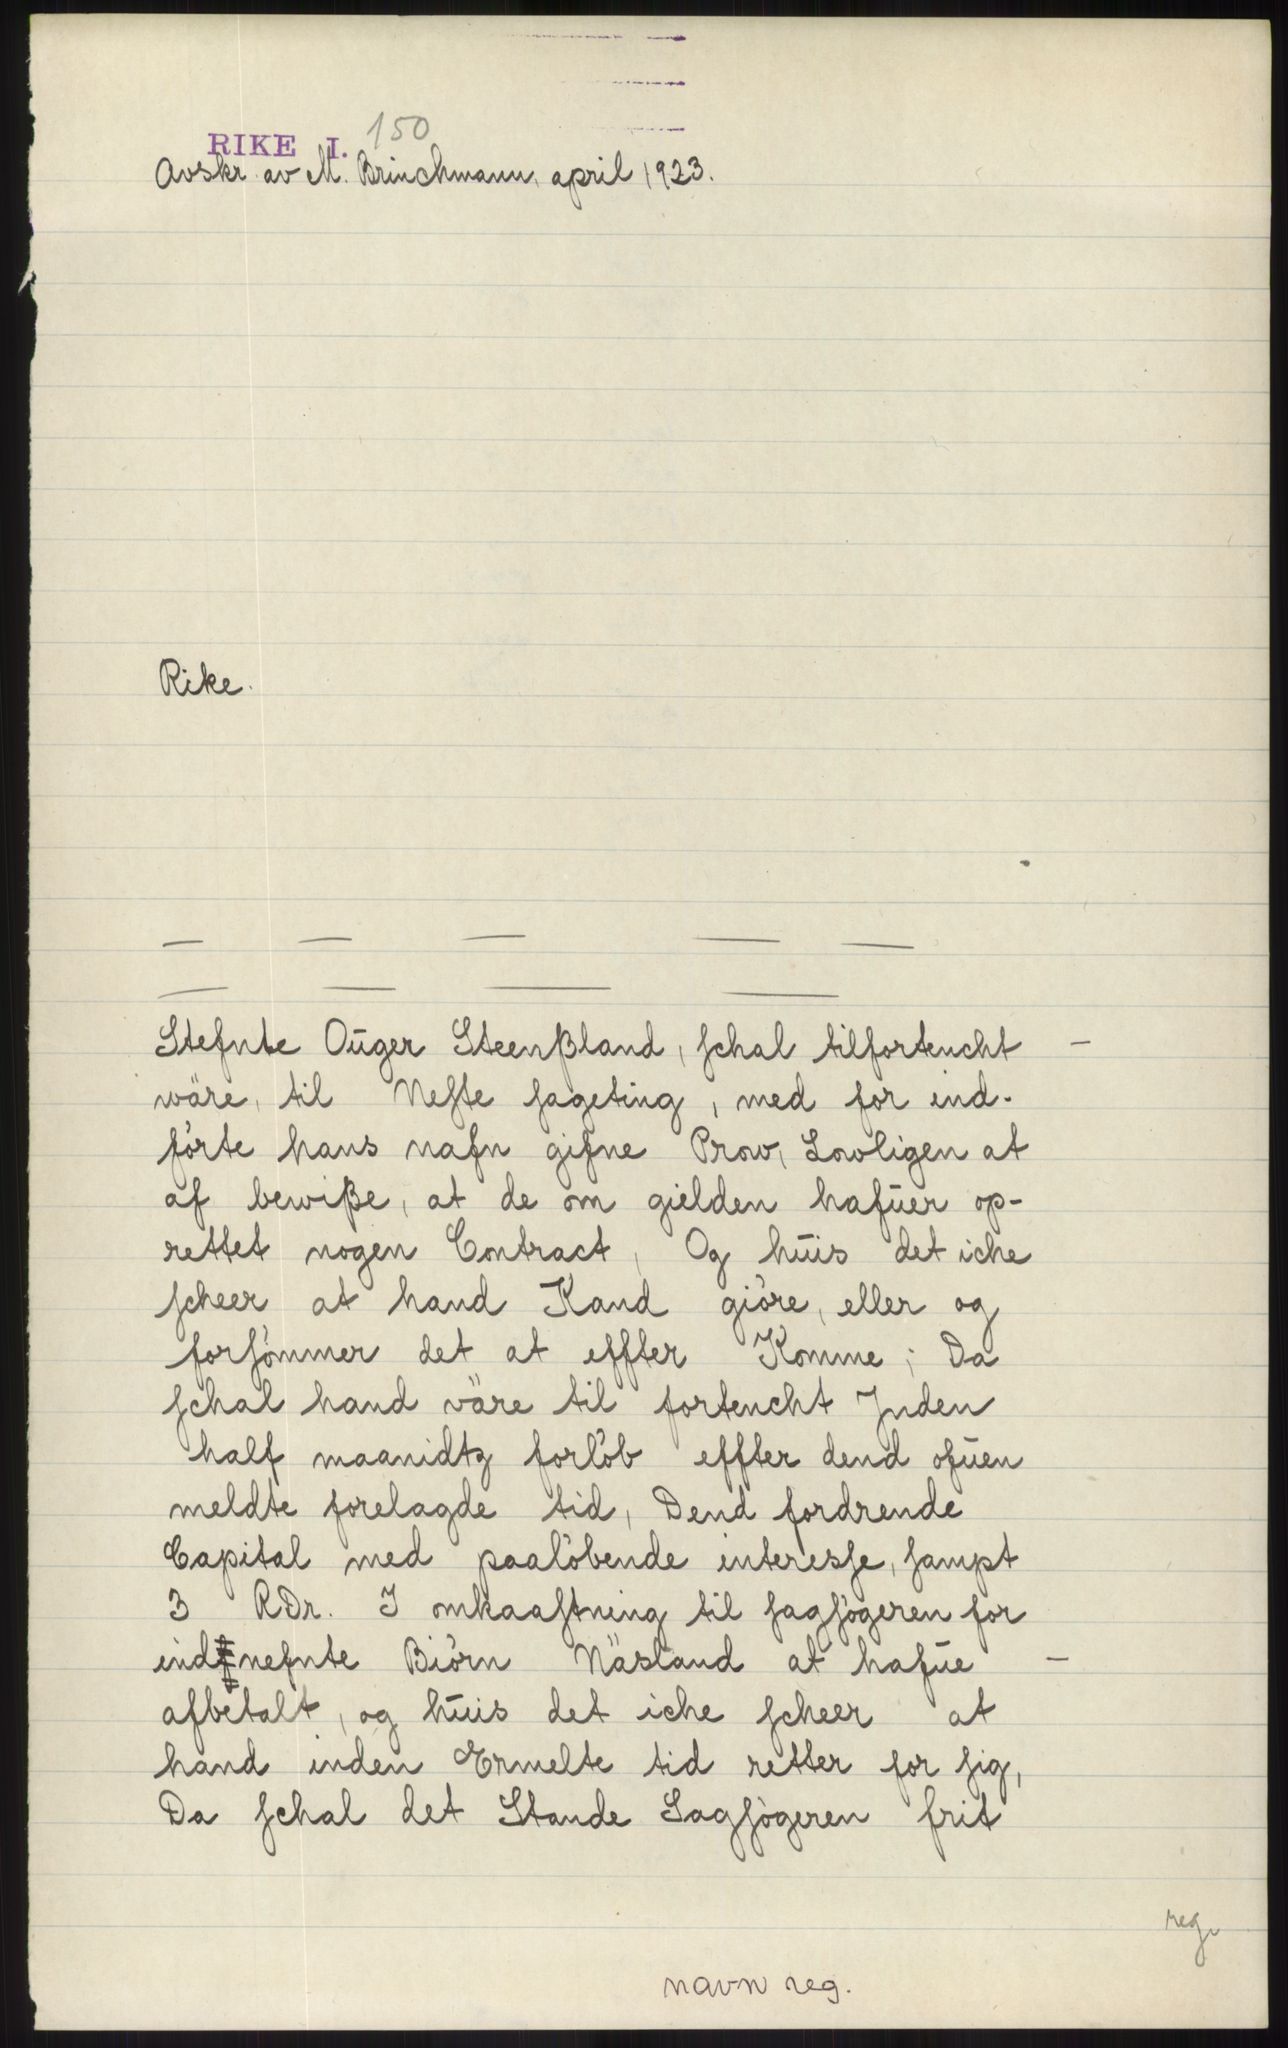 RIKE I. 150
Avskr. av M. Brinchmann, april 1923.
Rike.
— — — — —
— — — —
Stefnte Oŭger Steenßland, schal tilfortencht —
wäre, til Neste sageting, med for ind-
förte hans nafn gifne Prow, Lowligen at
af bewiße, at de om gielden hafŭer op-
rettet nogen Contract, Og hŭis det iche
scheer at hand Kand giöre, eller og
forsömmer det at effter Komme; Da
schal hand väre til fortencht Jnden
half maanidtz forlöb effter dend ofŭen
meldte forelagde tid, Dend fordrende
Capital med paalöbende interesse, sampt
3 RDr. I omkaastning til sagsögeren for
indnefnte Biörn Näsland at hafŭe —
afbetalt, og hŭis det iche scheer at
hand inden Ermelte tid retter for sig,
Da schal det Stande Sagsögeren frit
reg.
navn reg.